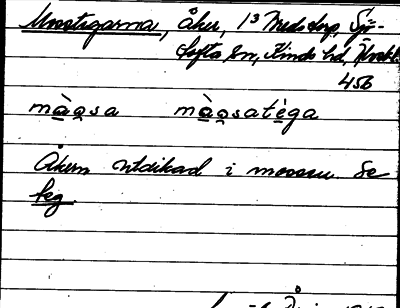 Mosstegarna, åker, 1³ Nedstorp, Sjö-
tofta sn, Kinds hd, Älvsbl.
456
mào̧sa mào̧satèga
Åkern utdikad i mossen. Se
leg.